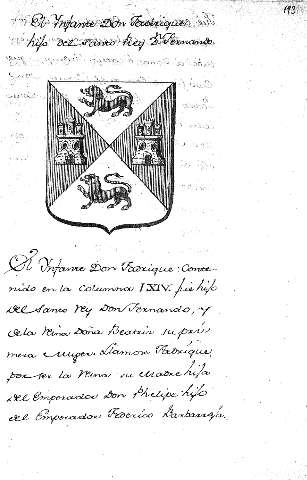 193
El Ynfante Don Fadrique
hijo del Santo Rey Dn. Fernando.
El Ynfante Don Fadrique: Conte-
nido en la Columna LXIV. fue hijo
del Santo Rey Don Fernando, y
de la Reina Doña Beatriz su pri-
mera Muger. Llamose Fadrique,
por ser la Reina su Madre hija
del Emperador Don Phelipe hijo
del Emperador Federico Barbarroja.